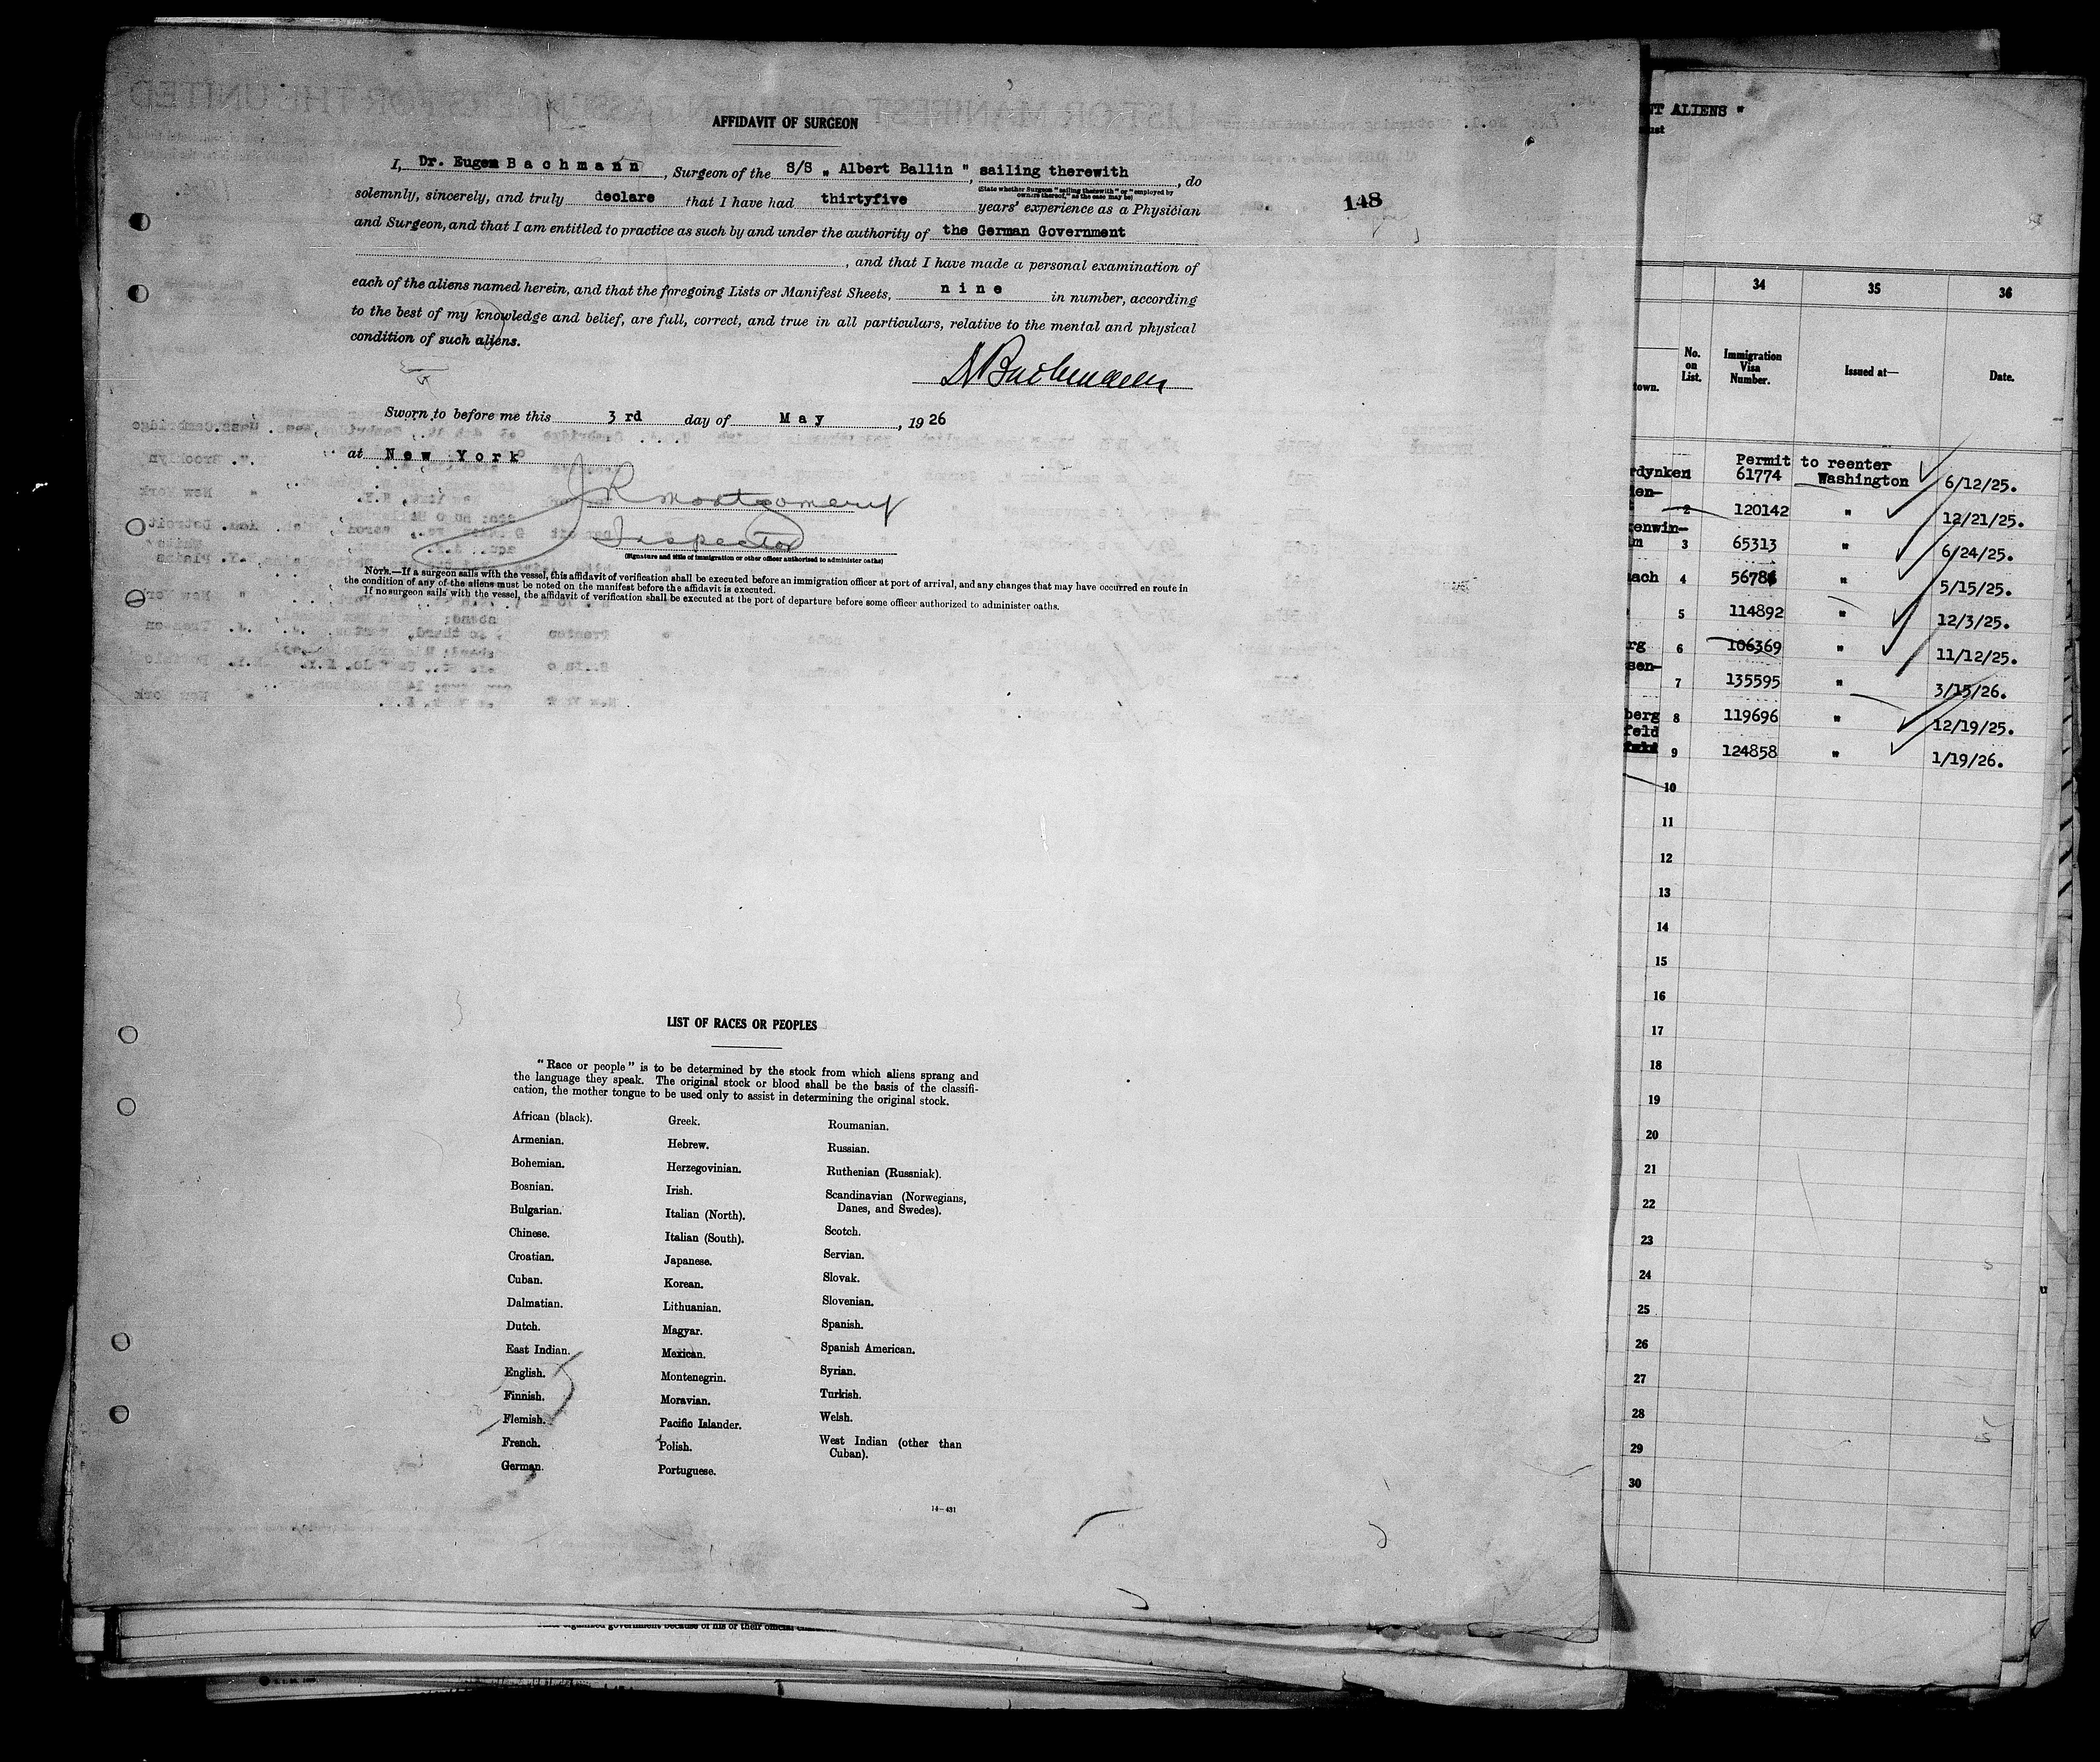 AFFIDAVIT OF SURGEON
I, Dr. Eugen Bachmann, Surgeon of the S/S „ Albert Ballin " sailing therewith, do
(State whether Surgeon "sailing therewith" or "employed by owners thereof," as the case may be)
solemnly, sincerely, and truly declare that I have had thirtyfive years' experience as a Physician
and Surgeon, and that I am entitled to practice as such by and under the authority of the German Government
, and that I have made a personal examination of
each of the aliens named herein, and that the foregoing Lists or Manifest Sheets, nine in number, according
to the best of my knowledge and belief, are full, correct, and true in all particulars, relative to the mental and physical
condition of such aliens.
Bachmann
Sworn to before me this 3rd day of May, 1926
at New York
JR Montgomery
Inspector
(Signature and title of immigration or other officer authorized to administer oaths)
NOTE.—If a surgeon sails with the vessel, this affidavit of verification shall be executed before an immigration officer at port of arrival, and any changes that may have occurred en route in
the condition of any of the aliens must be noted on the manifest before the affidavit is executed.
If no surgeon sails with the vessel, the affidavit of verification shall be executed at the port of departure before some officer authorized to administer oaths.
148
LIST OF RACES OR PEOPLES
"Race or people" is to be determined by the stock from which aliens sprang and
the language they speak. The original stock or blood shall be the basis of the classifi-
cation, the mother tongue to be used only to assist in determining the original stock.
African (black).
Armenian.
Bohemian.
Bosnian.
Bulgarian.
Chinese.
Croatian.
Cuban.
Dalmatian.
Dutch.
East Indian.
English.
Finnish.
Flemish.
French.
German.
Greek.
Hebrew.
Herzegovinian.
Irish.
Italian (North).
Italian (South).
Japanese.
Korean.
Lithuanian.
Magyar.
Mexican.
Montenegrin.
Moravian.
Pacific Islander.
Polish.
Portuguese.
Roumanian.
Russian.
Ruthenian (Russniak).
Scandinavian (Norwegians,
Danes, and Swedes).
Scotch.
Servian.
Slovak.
Slovenian.
Spanish.
Spanish American.
Syrian.
Turkish.
Welsh.
West Indian (other than
Cuban).
14—431
NT ALIENS "
ust
34 35 36
town. No. on List. Immigration Visa Number. Issued at— Date.
Permit to reenter
rdynken 1 61774 Washington 6/12/25.
ien-
2 120142 " 12/21/25.
enwin-
m 3 65313 " 6/24/25.
ach 4 56784 " 5/15/25.
5 114892 " 12/3/25.
rg 6 106369 " 11/12/25.
sen-
7 135595 " 3/15/26.
berg 8 119696 " 12/19/25.
feld
9 124858 " 1/19/26.
10
11
12
13
14
15
16
17
18
19
20
21
22
23
24
25
26
27
28
29
30